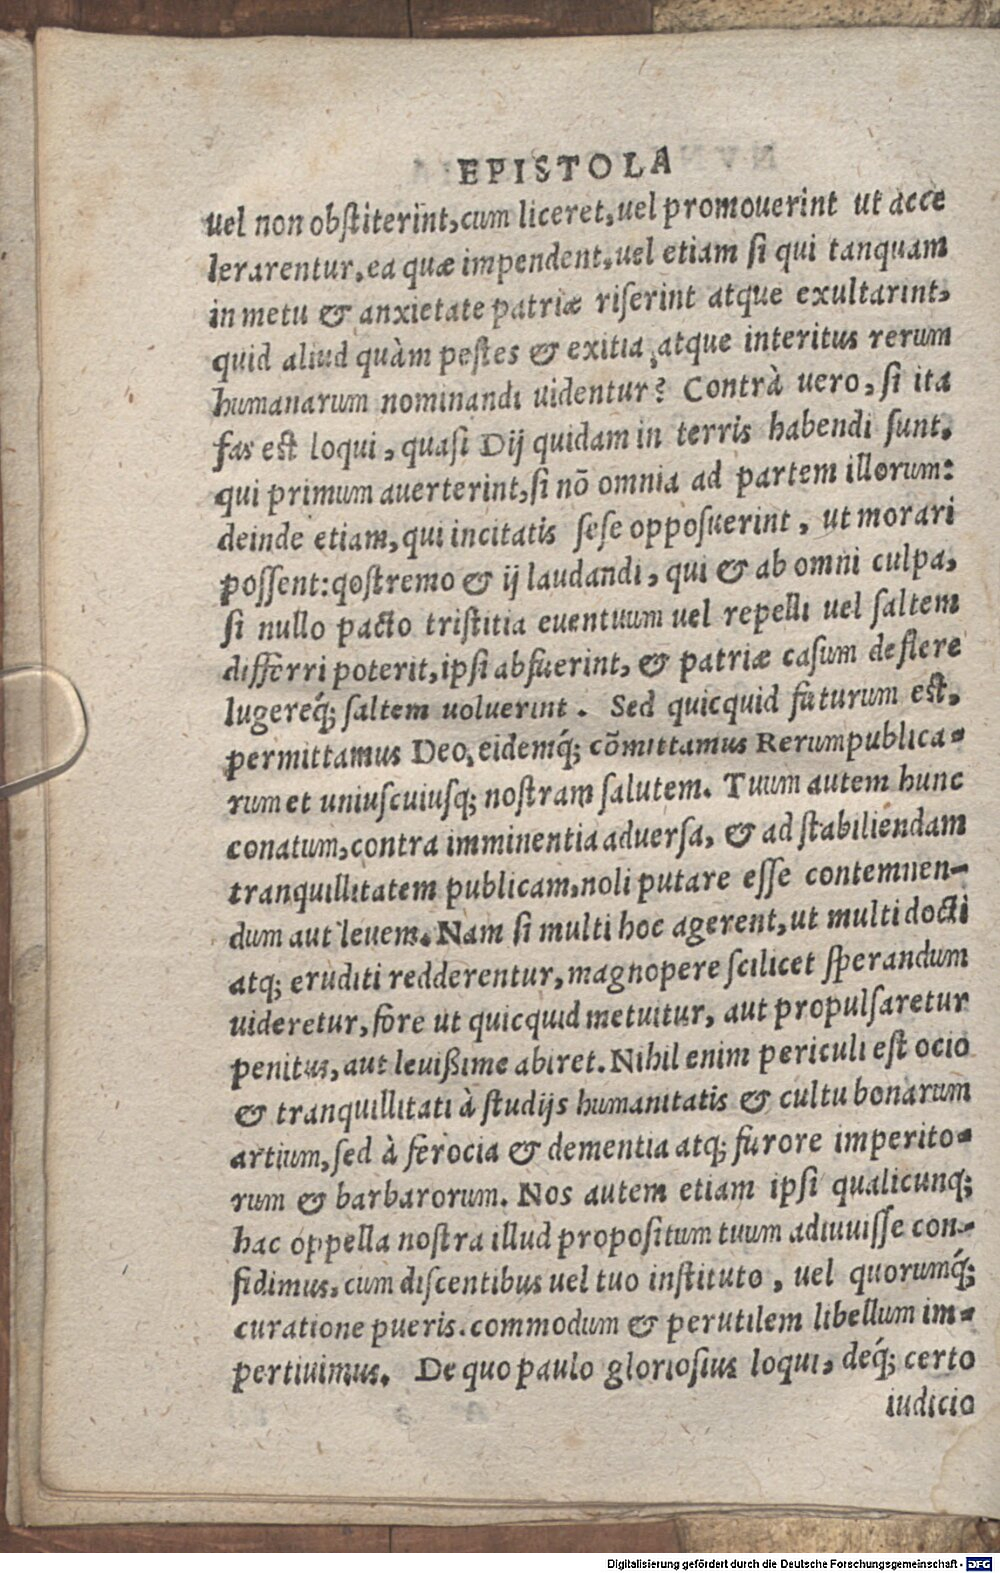 EPISTOLA
uel non obstiterint, cum liceret, uel promouerint ut acce
lerarentur, ea quæ impendent, uel etiam si qui tanquam
in metu & anxietate patriæ riserint atque exultarint,
quid aliud quàm pestes & exitia, atque interitus rerum
humanarum nominandi uidentur? Contrà uero, si ita
fas est loqui, quasi Dij quidam in terris habendi sunt,
qui primum auerterint, si nō omnia ad partem illorum:
deinde etiam, qui incitatis sese opposuerint, ut morari
possent: qostremo & ij laudandi, qui & ab omni culpa,
si nullo pacto tristitia euentuum uel repelli uel saltem
differri poterit, ipsi absuerint, & patriæ casum deflere
lugereq́; saltem uoluerint. Sed quicquid futurum est,
permittamus Deo, eidemq́; cōmittamus Rerumpublica-
rum et uniuscuiusq; nostram salutem. Tuum autem hunc
conatum, contra imminentia aduersa, & ad stabiliendam
tranquillitatem publicam, noli putare esse contemnen-
dum aut leuem. Nam si multi hoc agerent, ut multi docti
atq; eruditi redderentur, magnopere scilicet sperandum
uideretur, fore ut quicquid metuitur, aut propulsaretur
penitus, aut leuißime abiret. Nihil enim periculi est ocio
& tranquillitati à studijs humanitatis & cultu bonarum
artium, sed à ferocia & dementia atq; furore imperito-
rum & barbarorum. Nos autem etiam ipsi qualicunq;
hac oppella nostra illud propositum tuum adiuuisse con-
fidimus, cum discentibus uel tuo instituto, uel quorumq́;
curatione pueris, commodum & perutilem libellum im-
pertiuimus. De quo paulo gloriosius loqui, deq́; certo
iudicio
Digitalisierung gefördert durch die Deutsche Forschungsgemeinschaft - DFG